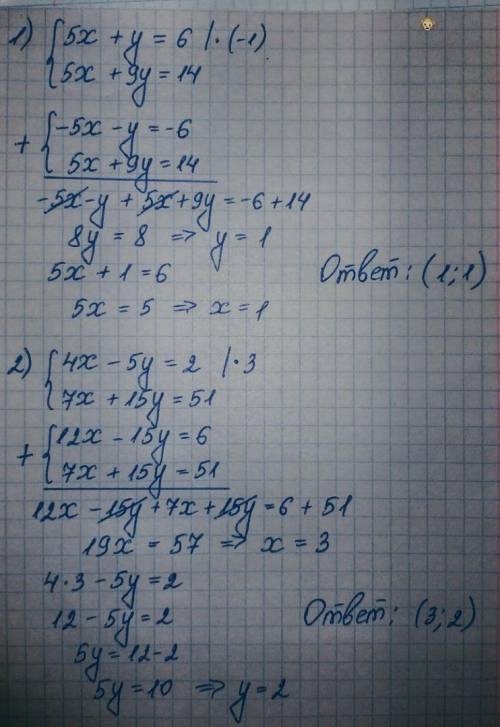 1) { 5x + y = 6 | · (-1)
5x + 9y = 14
+ { -5x - y = -6
5x + 9y = 14
-5x - y + 5x + 9y = -6 + 14
8y = 8 ⇒ y = 1
5x + 1 = 6
Ответ: (1; 1)
5x = 5 ⇒ x = 1
2) { 4x - 5y = 2 | · 3
7x + 15y = 51
+ { 12x - 15y = 6
7x + 15y = 51
12x - 15y + 7x + 15y = 6 + 51
19x = 57 ⇒ x = 3
4 · 3 - 5y = 2
12 - 5y = 2
Ответ: (3; 2)
5y = 12 - 2
5y = 10 ⇒ y = 2